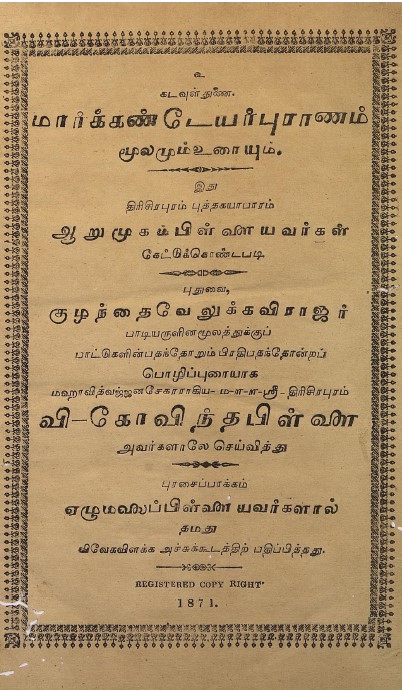 உ
கடவுள் துணை.
மார்க்கண்டேயர்புராணம்
மூலமும்உரையும்.
இது
திரிசிரபுரம் புத்தகவியாபாரம்
ஆறுமுகம்பிள்ளையவர்கள்
கேட்டுக்கொண்டபடி
புதுவை,
குழந்தைவேலுக்கவிராஜர்
பாடியருளினமூலத்துக்குப்
பாட்டுகளின்பதந்தோறும் பிரதிபதந்தோன்றப்
பொழிப்புரையாக
மஹாவித்வஜ்ஜனசேகரராகிய- ம-ா-ள-ஸ்ரீ- திரிசிரபுரம்
வி-கோவிந்தபிள்ளை
அவர்களாலே செய்வித்து
புரசைப்பாக்கம்
ஏழுமலைப்பிள்ளையவர்களால்
தமது
விவேகவிளக்க அச்சுக்கூடத்திற் பதிப்பித்தது.
REGISTERED COPY RIGHT
1871.